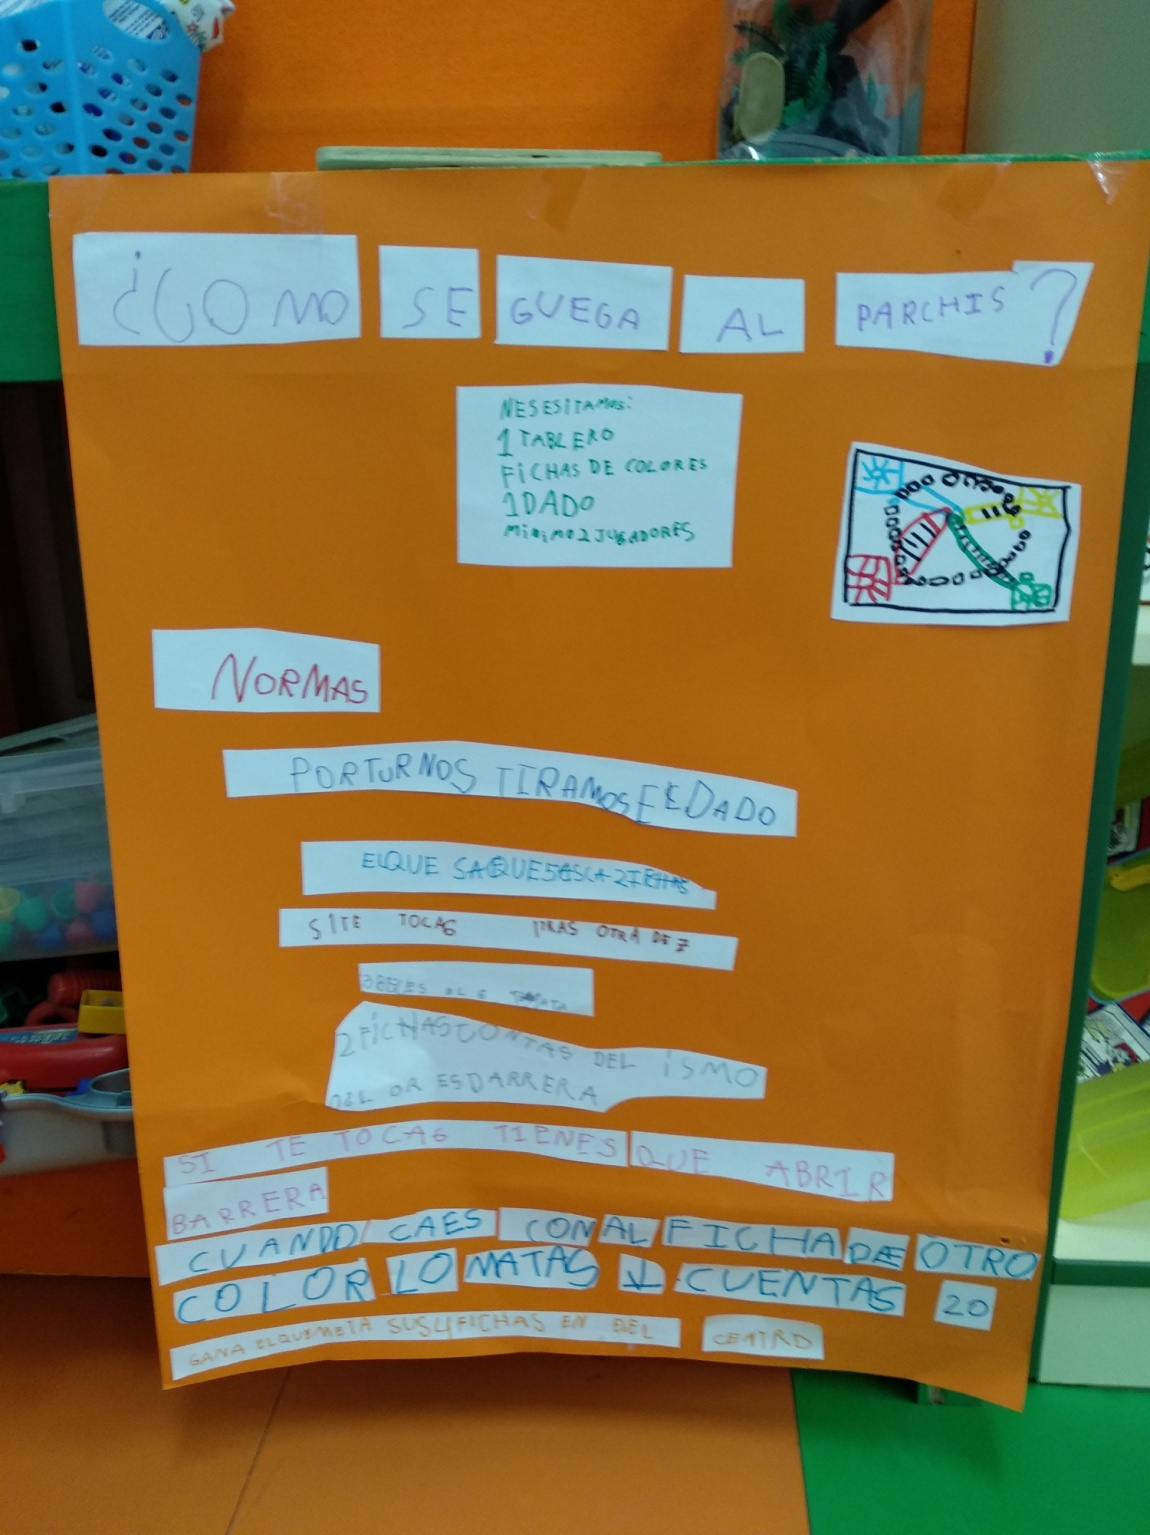 ¿COMO SE GUEGA AL PARCHIS?
NESESITAMOS:
1 TABLERO
FICHAS DE COLORES
1 DADO
MINIMO 2 JUGADORES
NORMAS
POR TURNOS TIRAMOS EL DADO
EL QUE SAQUE 5
SI TE TOCA 6 TIRAS OTRA DE 7
AL 6
2 FICHAS DEL ISMO
OR ES DARRERA
SI TE TOCA 6 TIENES QUE ABRIR
BARRERA
CUANDO CAES CON AL FICHA DE OTRO
COLOR LO MATAS I CUENTAS 20
GANA EL QUE META SUS 4 FICHAS EN EL CENTRO